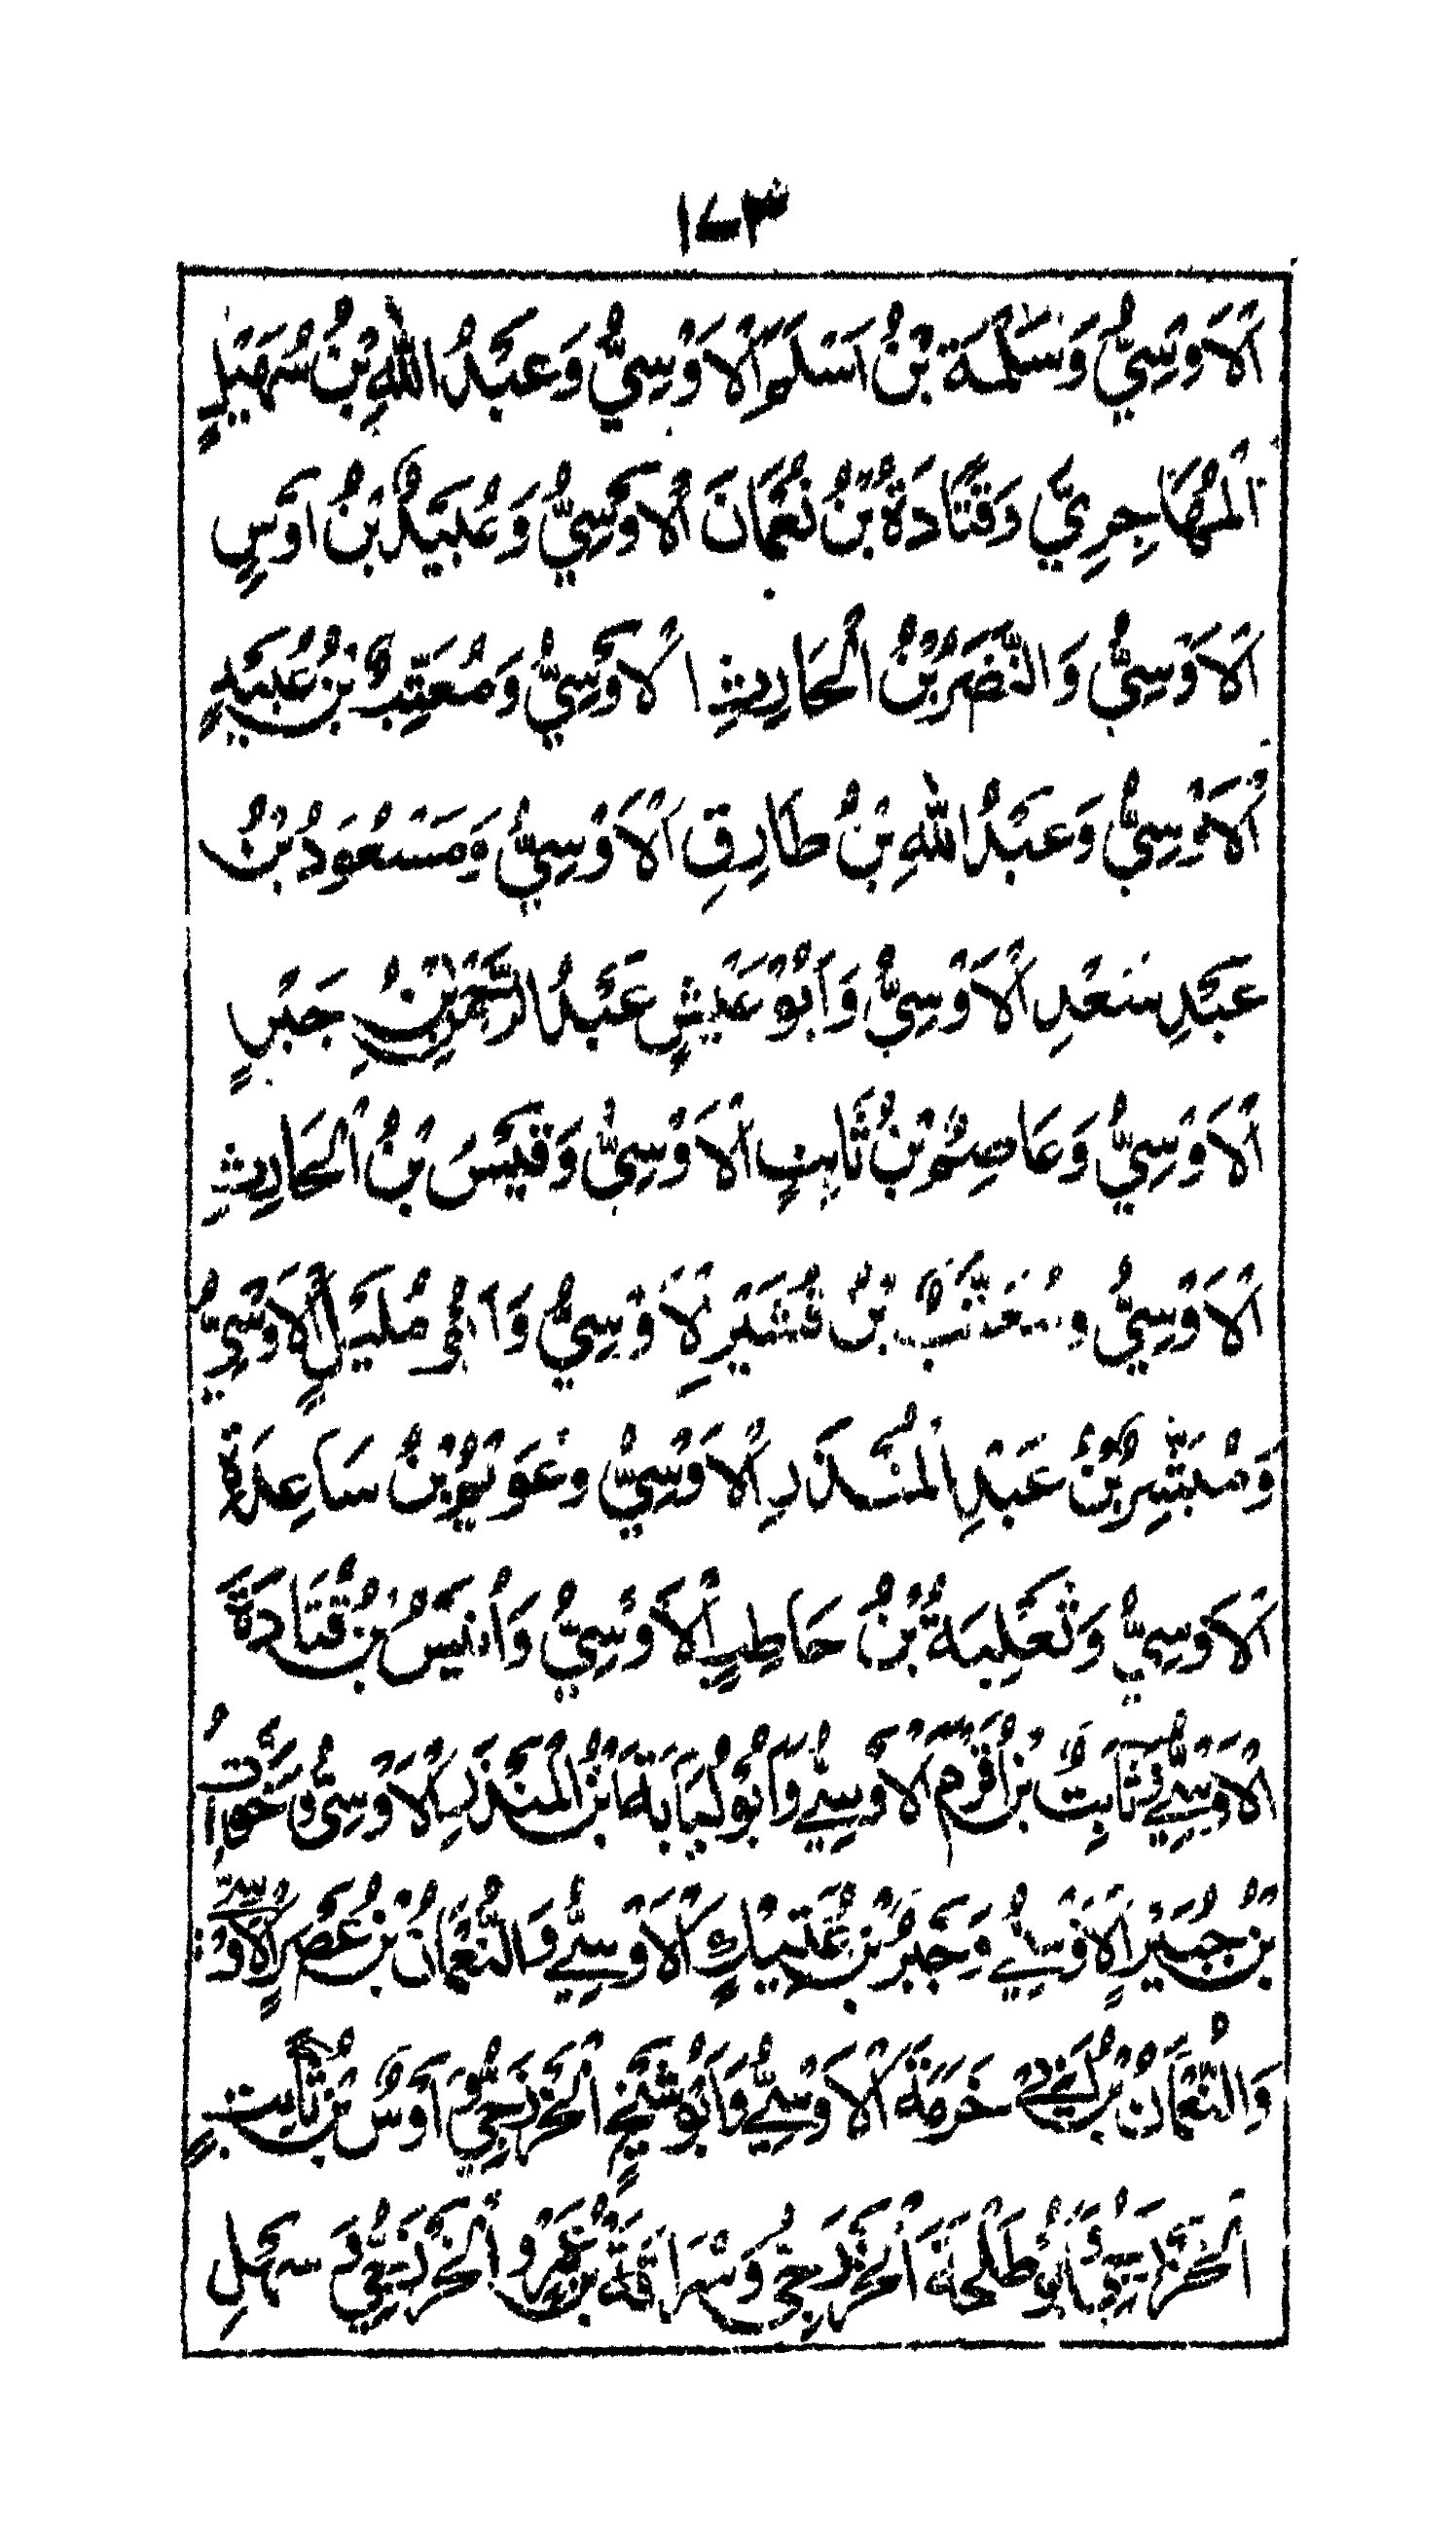 ١٧٣
اَلْاَوْسِيُّ وَسَلَمَةُ بْنُ اَسْلَمَ اَلْاَوْسِيُّ وَعَبْدُ اللهِ بْنُ سُهَيْلٍ
اَلْمُهَاجِرِيُّ وَقَتَادَةُ بْنُ نُعْمَانَ اَلْاَوْسِيُّ وَعُبَيْدُ بْنُ اَوْسٍ
اَلْاَوْسِيُّ وَالنَّضْرُ بْنُ الْحَارِثِ اَلْاَوْسِيُّ وَمُعَتِّبُ بْنُ عُبَيْدٍ
اَلْاَوْسِيُّ وَعَبْدُ اللهِ بْنُ طَارِقِ اَلْاَوْسِيُّ وَمَسْعُودُ بْنُ
عَبْدِ سَعْدِ اَلْاَوْسِيُّ وَاَبُوْ عَبْسٍ عَبْدُ الرَّحْمٰنِ بْنُ جَبْرٍ
اَلْاَوْسِيُّ وَعَاصِمُ بْنُ ثَابِتٍ اَلْاَوْسِيُّ وَقَيْسُ بْنُ الْحَارِثِ
اَلْاَوْسِيُّ وَمُعَتِّبُ بْنُ قُشَيْرِ لْاَوْسِيُّ وَاَبُو مُلَيْلٍ اَلْاَوْسِيُّ
وَمُبَشِّرُ بْنُ عَبْدِ الْمُنْذِرِ اَلْاَوْسِيُّ وَعُوَيْمُ بْنُ سَاعِدَةَ
اَلْاَوْسِيُّ وَثَعْلَبَةُ بْنُ حَاطِبٍ اَلْاَوْسِيُّ وَاُنَيْسُ بْنُ قَتَادَةَ
اَلْاَوْسِيُّ وَثَابِتُ بْنُ اَقْرَمَ اَلْاَوْسِيُّ وَاَبُوْ لُبَابَةَ بْنُ الْمُنْذِرِ اَلْاَوْسِيُّ وَخَوَّاتُ
بْنُ جُبَيْرٍ اَلْاَوْسِيُّ وَجَبْرُ بْنُ عَتِيْكٍ اَلْاَوْسِيُّ وَالنُّعْمَانُ بْنُ عَصَرٍ اَلْاَوْسِيُّ
وَالنُّعْمَانُ بْنُ اَبِي خَزَمَةَ اَلْاَوْسِيُّ وَاَبُوْ شَيْخٍ اَلْخَزْرَجِيُّ وَاَوْسُ بْنُ ثَابِتٍ
اَلْخَزْرَجِيُّ وَاَبُوْ طَلْحَةَ اَلْخَزْرَجِيُّ وَسُرَاقَةُ بْنُ عَمْرٍو اَلْخَزْرَجِيُّ وَ سَهْلِ